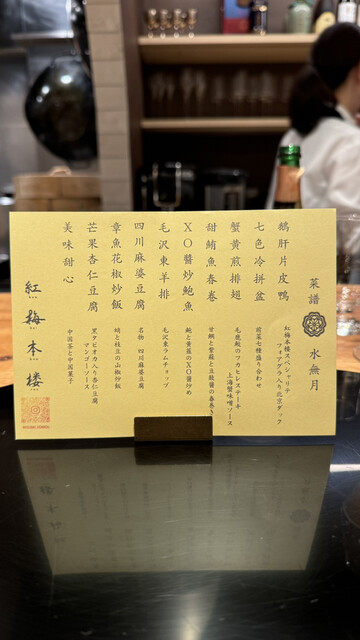 菜譜 水無月
鵝肝片皮鴨
紅梅本楼スペシャリテ
フォアグラ入り北京ダック
七色冷拼盆
前菜七種盛り合わせ
蟹黄煎排翅
毛鹿鮫のフカヒレステーキ
上海蟹味噌ソース
甜鮪魚春巻
甘鯛と紫蘇と豆鼓醤の春巻き
XO醬炒鮑魚
鮑と黄韮のXO醤炒め
毛沢東羊排
毛沢東ラムチョップ
四川麻婆豆腐
名物 四川麻婆豆腐
章魚花椒炒飯
蛸と枝豆の山椒炒飯
芒果杏仁豆腐
黒タピオカ入り杏仁豆腐
マンゴーソース
美味甜心
中国茶と中国菓子
紅梅本楼